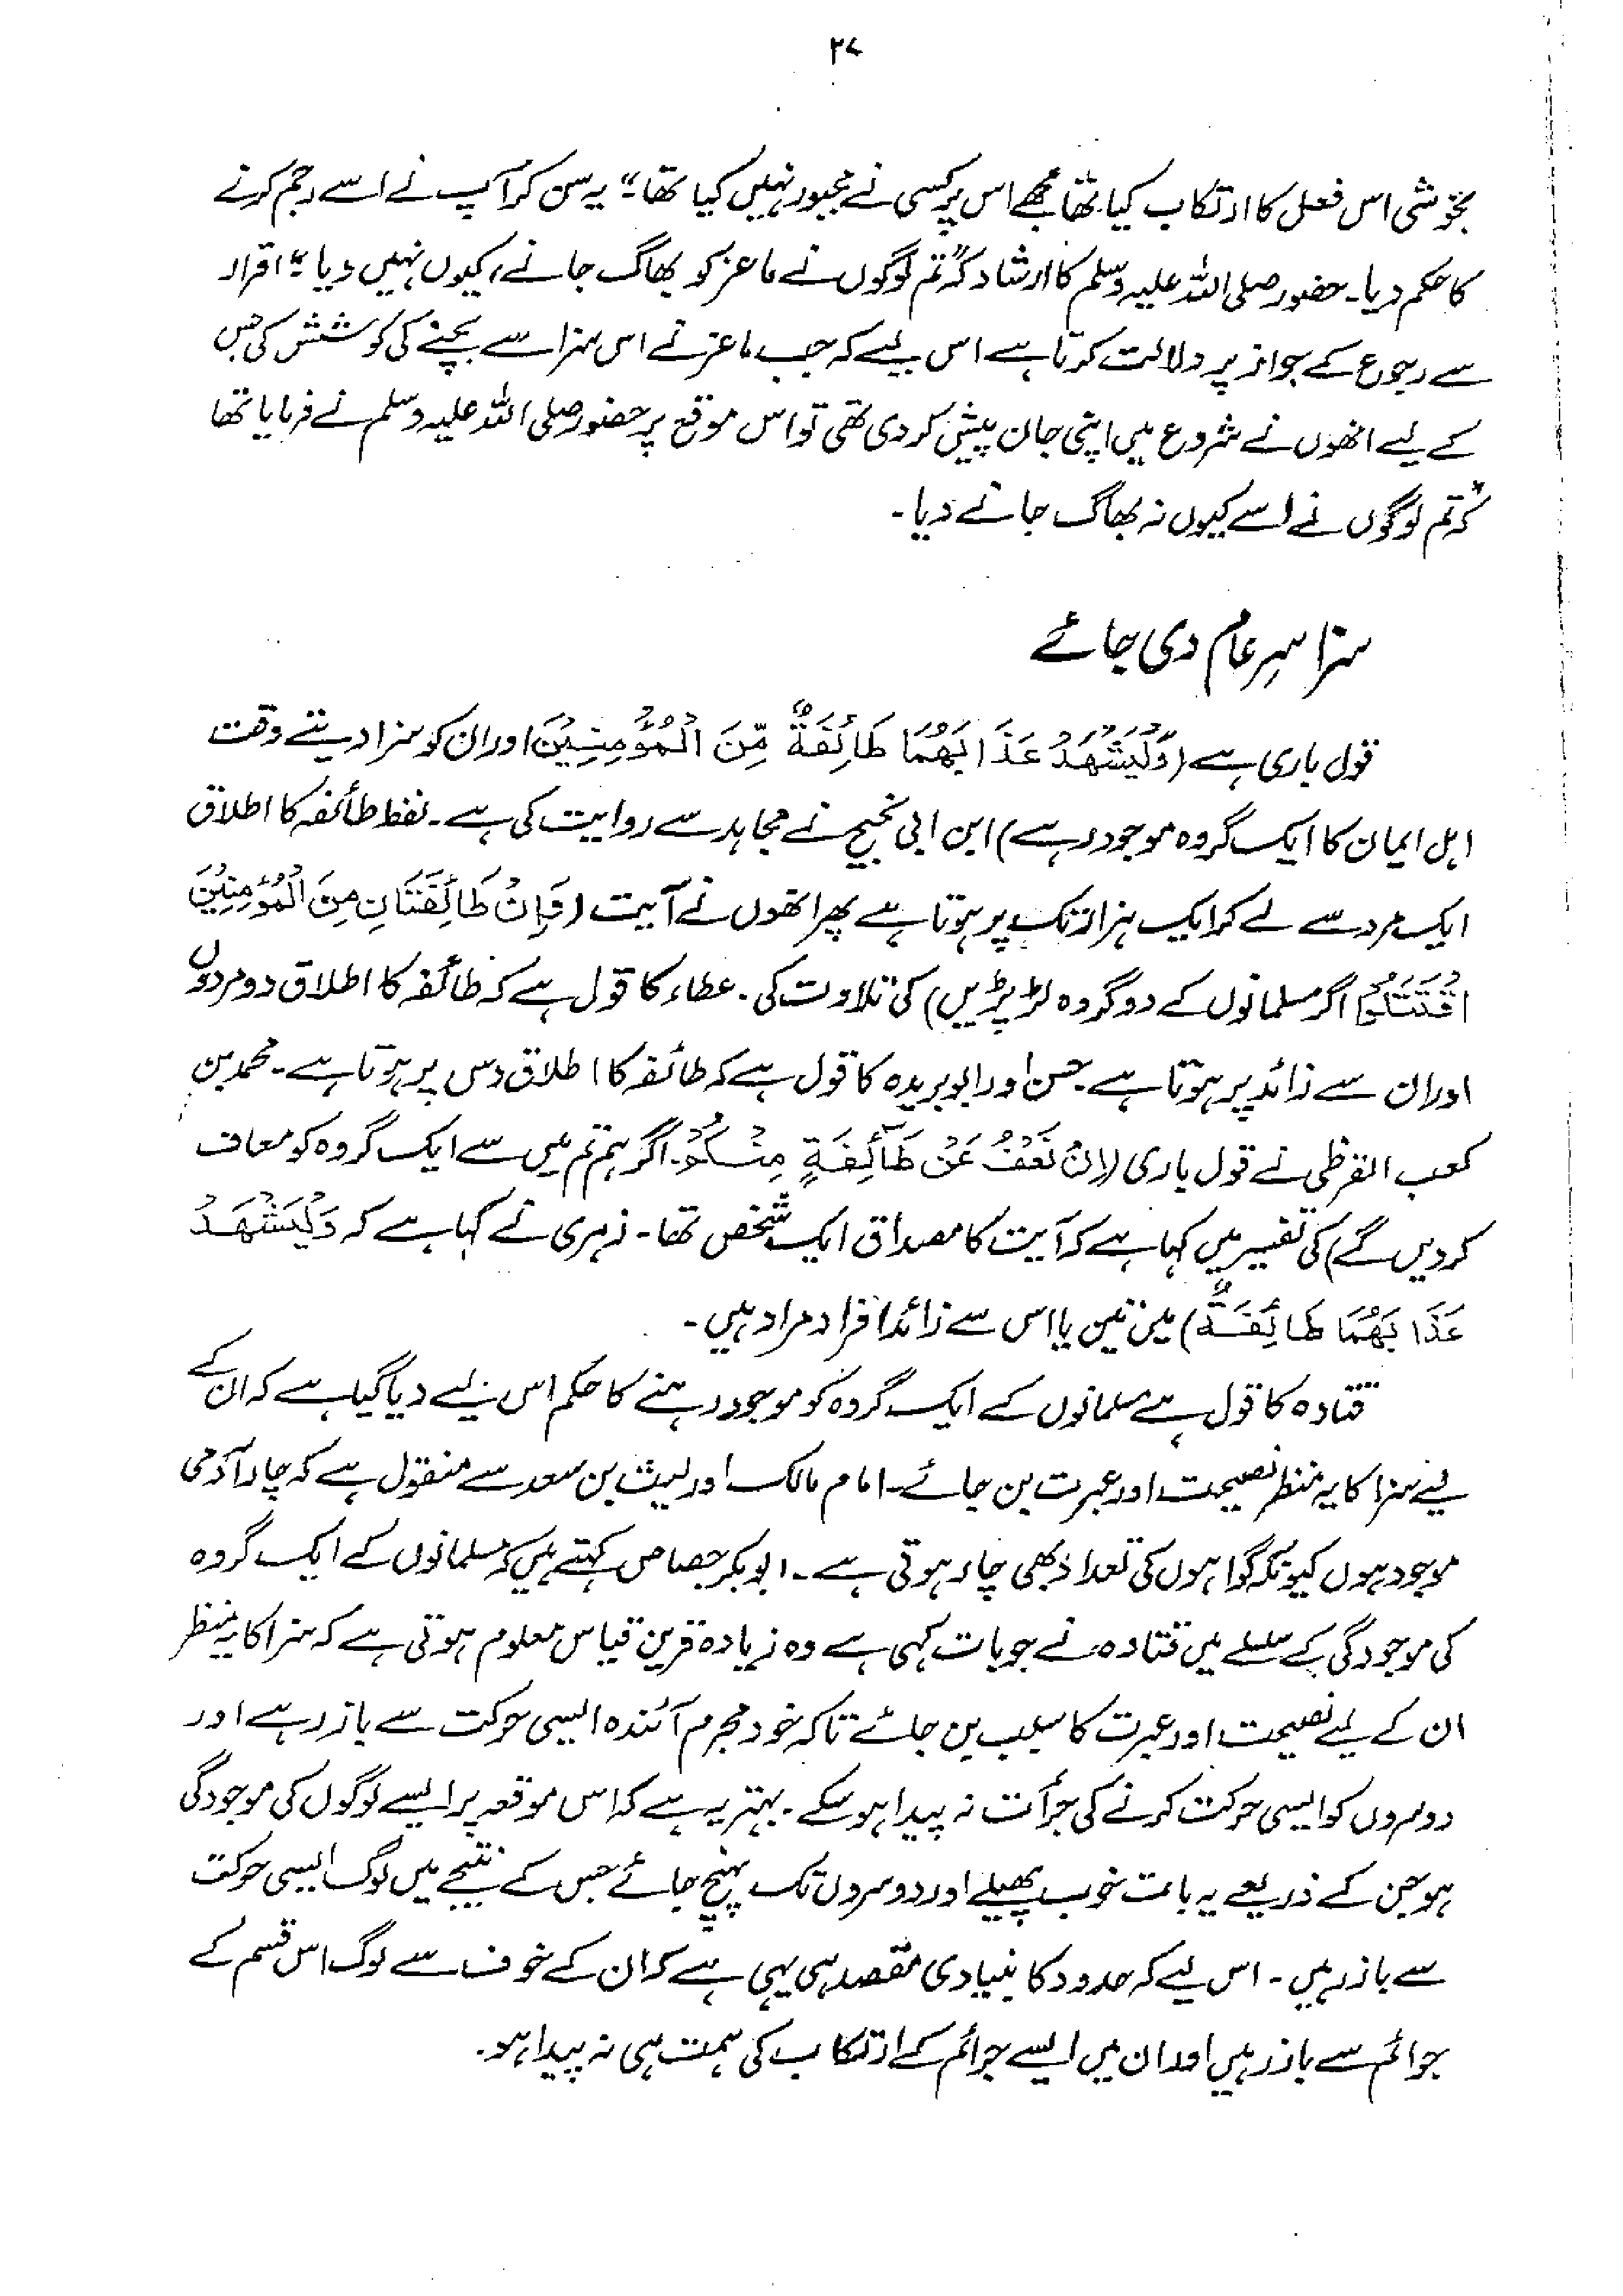 ۲۷
بخوشی اس فعل کا ارتکاب کیا تھا مجھے اس پر کسی نے مجبور نہیں کیا تھا۔" یہ سن کر آپ نے اسے رجم کرنے
کا حکم دیا۔ حضور صلی اللہ علیہ وسلم کا ارشاد کہ "تم لوگوں نے ماعز کو بھاگ جانے، کیوں نہیں دیا"؛ اقرار
سے رجوع کے جواز پر دلالت کرتا ہے اس لیے کہ جب ماعز نے اس سزا سے بچنے کی کوشش کی جس
کے لیے انھوں نے شروع میں اپنی جان پیش کر دی تھی تو اس موقع پر حضور صلی اللہ علیہ وسلم نے فرمایا تھا
کہ "تم لوگوں نے اسے کیوں نہ بھاگ جانے دیا۔
سزا سرِ عام دی جائے
قول باری ہے (وَلْيَشْهَدْ عَذَابَهُمَا طَائِفَةٌ مِّنَ الْمُؤْمِنِيْنَ اور ان کو سزا دیتے وقت
اہل ایمان کا ایک گروہ موجود رہے) ابن ابی نجیح نے مجاہد سے روایت کی ہے۔ لفظ طائفہ کا اطلاق
ایک مرد سے لے کر ایک ہزار تک پر ہوتا ہے پھر انھوں نے آیت (فَإِنْ طَائِفَتَانِ مِنَ الْمُؤْمِنِيْنَ
اقْتَتَلُوا اگر مسلمانوں کے دو گروہ لڑ پڑیں) کی تلاوت کی۔ عطاء کا قول ہے کہ طائفہ کا اطلاق دو مردوں
اور ان سے زائد پر ہوتا ہے۔ حسن اور ابوبریدہ کا قول ہے کہ طائفہ کا اطلاق دس پر ہوتا ہے۔ محمد بن
کعب القرظی نے قول باری (اِنْ نَعْفُ عَنْ طَآئِفَةٍ مِنْكُمْ۔ اگر ہم تم میں سے ایک گروہ کو معاف
کر دیں گے) کی تفسیر میں کہا ہے کہ آیت کا مصداق ایک شخص تھا۔ زہری نے کہا ہے کہ وَلْيَشْهَدْ
عَذَابَهُمَا طَائِفَةٌ) میں تین یا اس سے زائد افراد مراد ہیں۔
قتادہ کا قول ہے مسلمانوں کے ایک گروہ کو موجود رہنے کا حکم اس لیے دیا گیا ہے کہ ان کے
لیے سزا کا یہ منظر نصیحت اور عبرت بن جائے۔ امام مالک اور لیث بن سعد سے منقول ہے کہ چار آدمی
موجود ہوں کیونکہ گواہوں کی تعداد بھی چار ہوتی ہے۔ ابوبکر جصاص کہتے ہیں کہ مسلمانوں کے ایک گروہ
کی موجودگی کے سلسلے میں قتادہ نے جو بات کہی ہے وہ زیادہ قرین قیاس معلوم ہوتی ہے کہ سزا کا یہ منظر
ان کے لیے نصیحت اور عبرت کا سبب بن جائے تاکہ خود مجرم آئندہ ایسی حرکت سے باز رہے اور
دوسروں کو ایسی حرکت کرنے کی جرأت نہ پیدا ہو سکے۔ بہتر یہ ہے کہ اس موقعہ پر ایسے لوگوں کی موجودگی
ہو جن کے ذریعے یہ بات خوب پھیلے اور دوسروں تک پہنچ جائے جس کے نتیجے میں لوگ ایسی حرکت
سے باز رہیں۔ اس لیے کہ حدود کا بنیادی مقصد ہی یہی ہے کہ ان کے خوف سے لوگ اس قسم کے
جرائم سے باز رہیں اور ان میں ایسے جرائم کے ارتکاب کی ہمت ہی نہ پیدا ہو۔